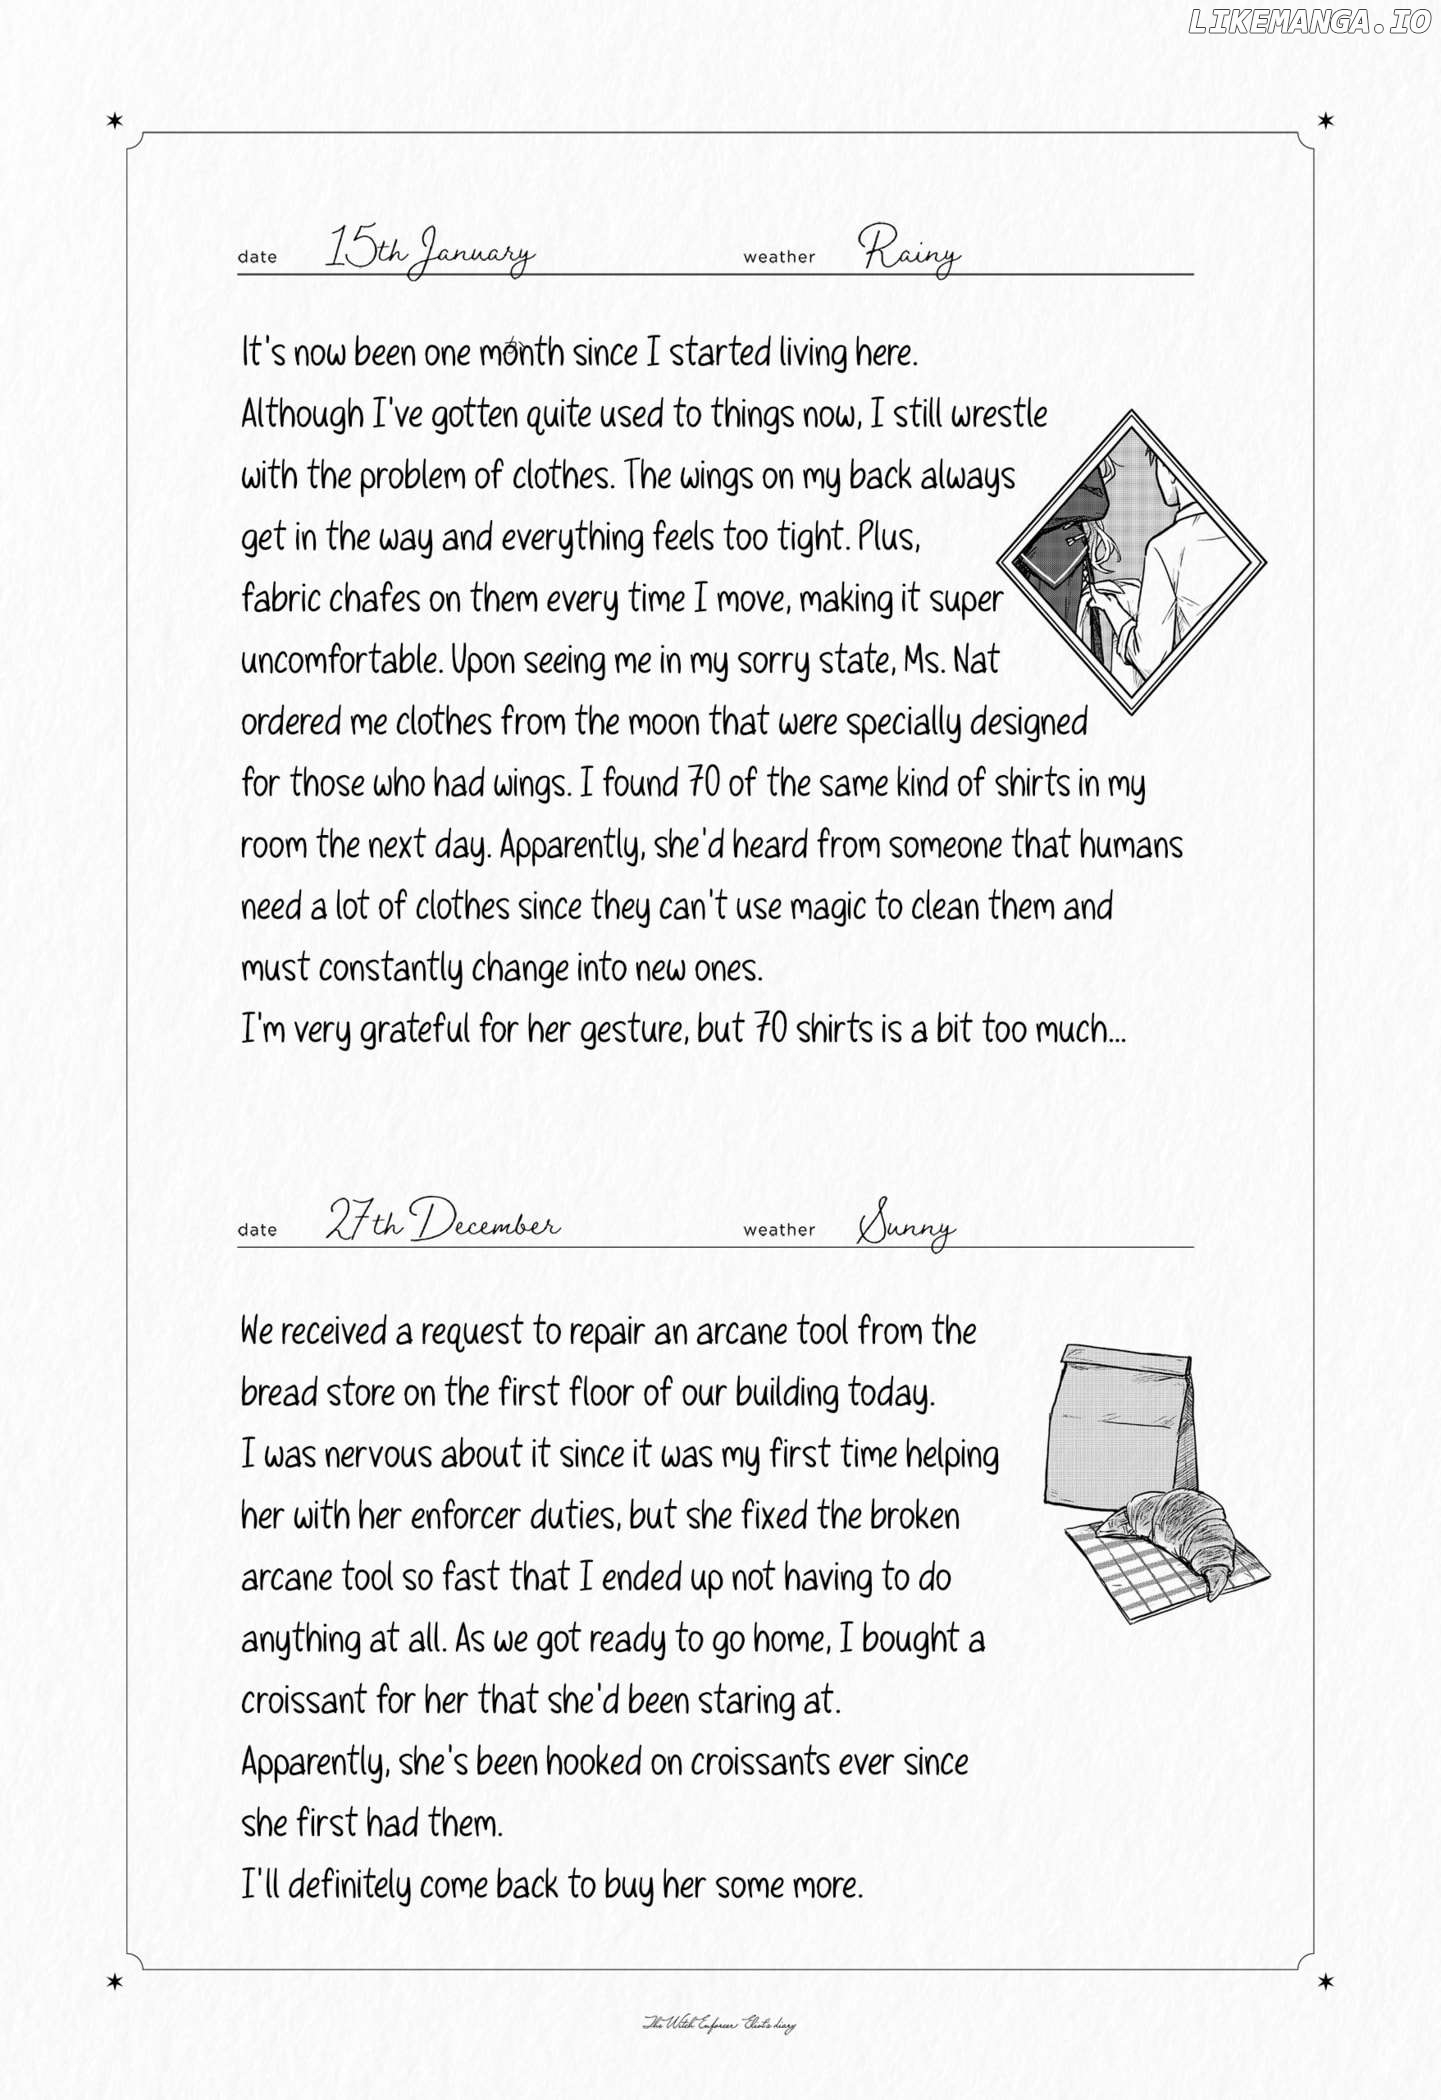 LIKEMANGA.IO
date 15th January weather Rainy
It's now been one month since I started living here.
Although I've gotten quite used to things now, I still wrestle
with the problem of clothes. The wings on my back always
get in the way and everything feels too tight. Plus,
fabric chafes on them every time I move, making it super
uncomfortable. Upon seeing me in my sorry state, Ms. Nat
ordered me clothes from the moon that were specially designed
for those who had wings. I found 70 of the same kind of shirts in my
room the next day. Apparently, she'd heard from someone that humans
need a lot of clothes since they can't use magic to clean them and
must constantly change into new ones.
I'm very grateful for her gesture, but 70 shirts is a bit too much...
date 27th December weather Sunny
We received a request to repair an arcane tool from the
bread store on the first floor of our building today.
I was nervous about it since it was my first time helping
her with her enforcer duties, but she fixed the broken
arcane tool so fast that I ended up not having to do
anything at all. As we got ready to go home, I bought a
croissant for her that she'd been staring at.
Apparently, she's been hooked on croissants ever since
she first had them.
I'll definitely come back to buy her some more.
The Witch Enforcer Eliot's diary